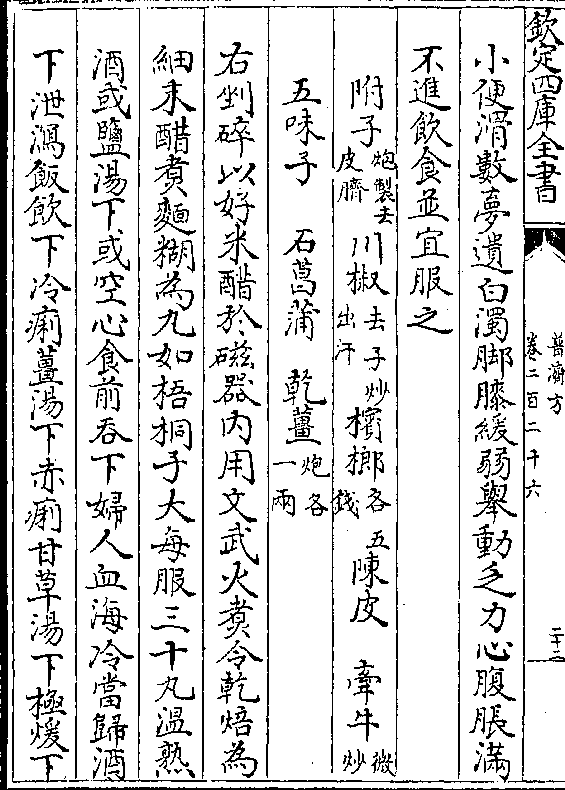 欽定四庫全書
普濟方
卷二百二十六
二十二
小便滑數夢遺白濁脚膝緩弱舉動乏力心腹脹滿
不進飲食並宜服之
附子炮製去皮臍 川椒去子炒出汗 檳榔各五錢 陳皮 牽牛微炒
五味子 石菖蒲 乾薑炮各一兩
右剉碎以好米醋於磁器内用文武火煮令乾焙為
細末醋煮麵糊為九如梧桐子大每服三十丸温熟
酒或鹽湯下或空心食前吞下婦人血海冷當歸酒
下泄瀉飯飲下冷痢薑湯下赤痢甘草湯下極煖下